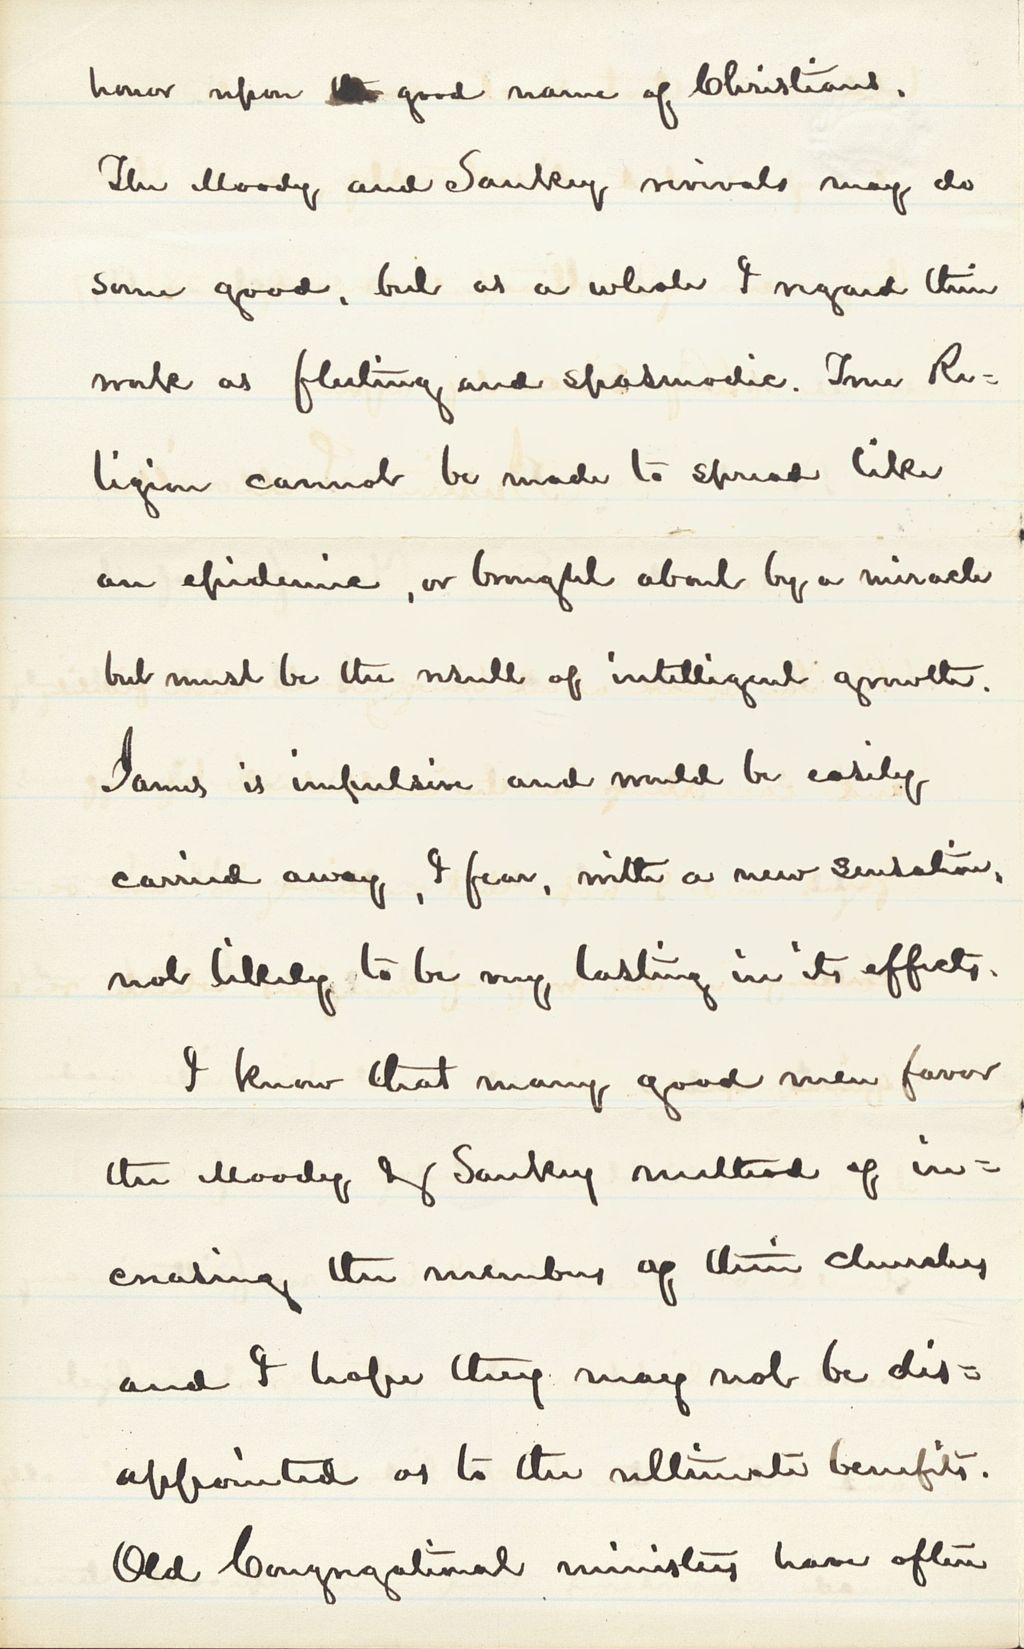 honor upon the good name of Christians.
The Moody and Sankey revivals may do
some good, but as a whole I regard their
work as fleeting and spasmodic. True Re=
ligion cannot be made to spread like
an epidemic, or brought about by a miracle
but must be the result of intelligent growth.
James is impulsive and would be easily
carried away, I fear, with a new sensation,
not likely to be very lasting in its effects.
I know that many good men favor
the Moody & Sankey method of in=
creasing the members of their churches
and I hope they may not be dis=
appointed as to the ultimate benefits.
Old Congregational ministers have often